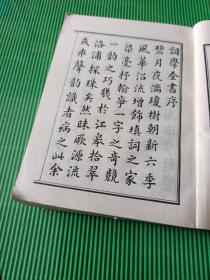 詞學全書序
碧月夜滿瓊樹朝新六季
風華沿流增飾填詞之家
染毫抒翰寧一字之奇競
一韵之巧幾於江皋拾翠
洛浦採珠矣然昧厥源流
或乖聲韵識者病之此余